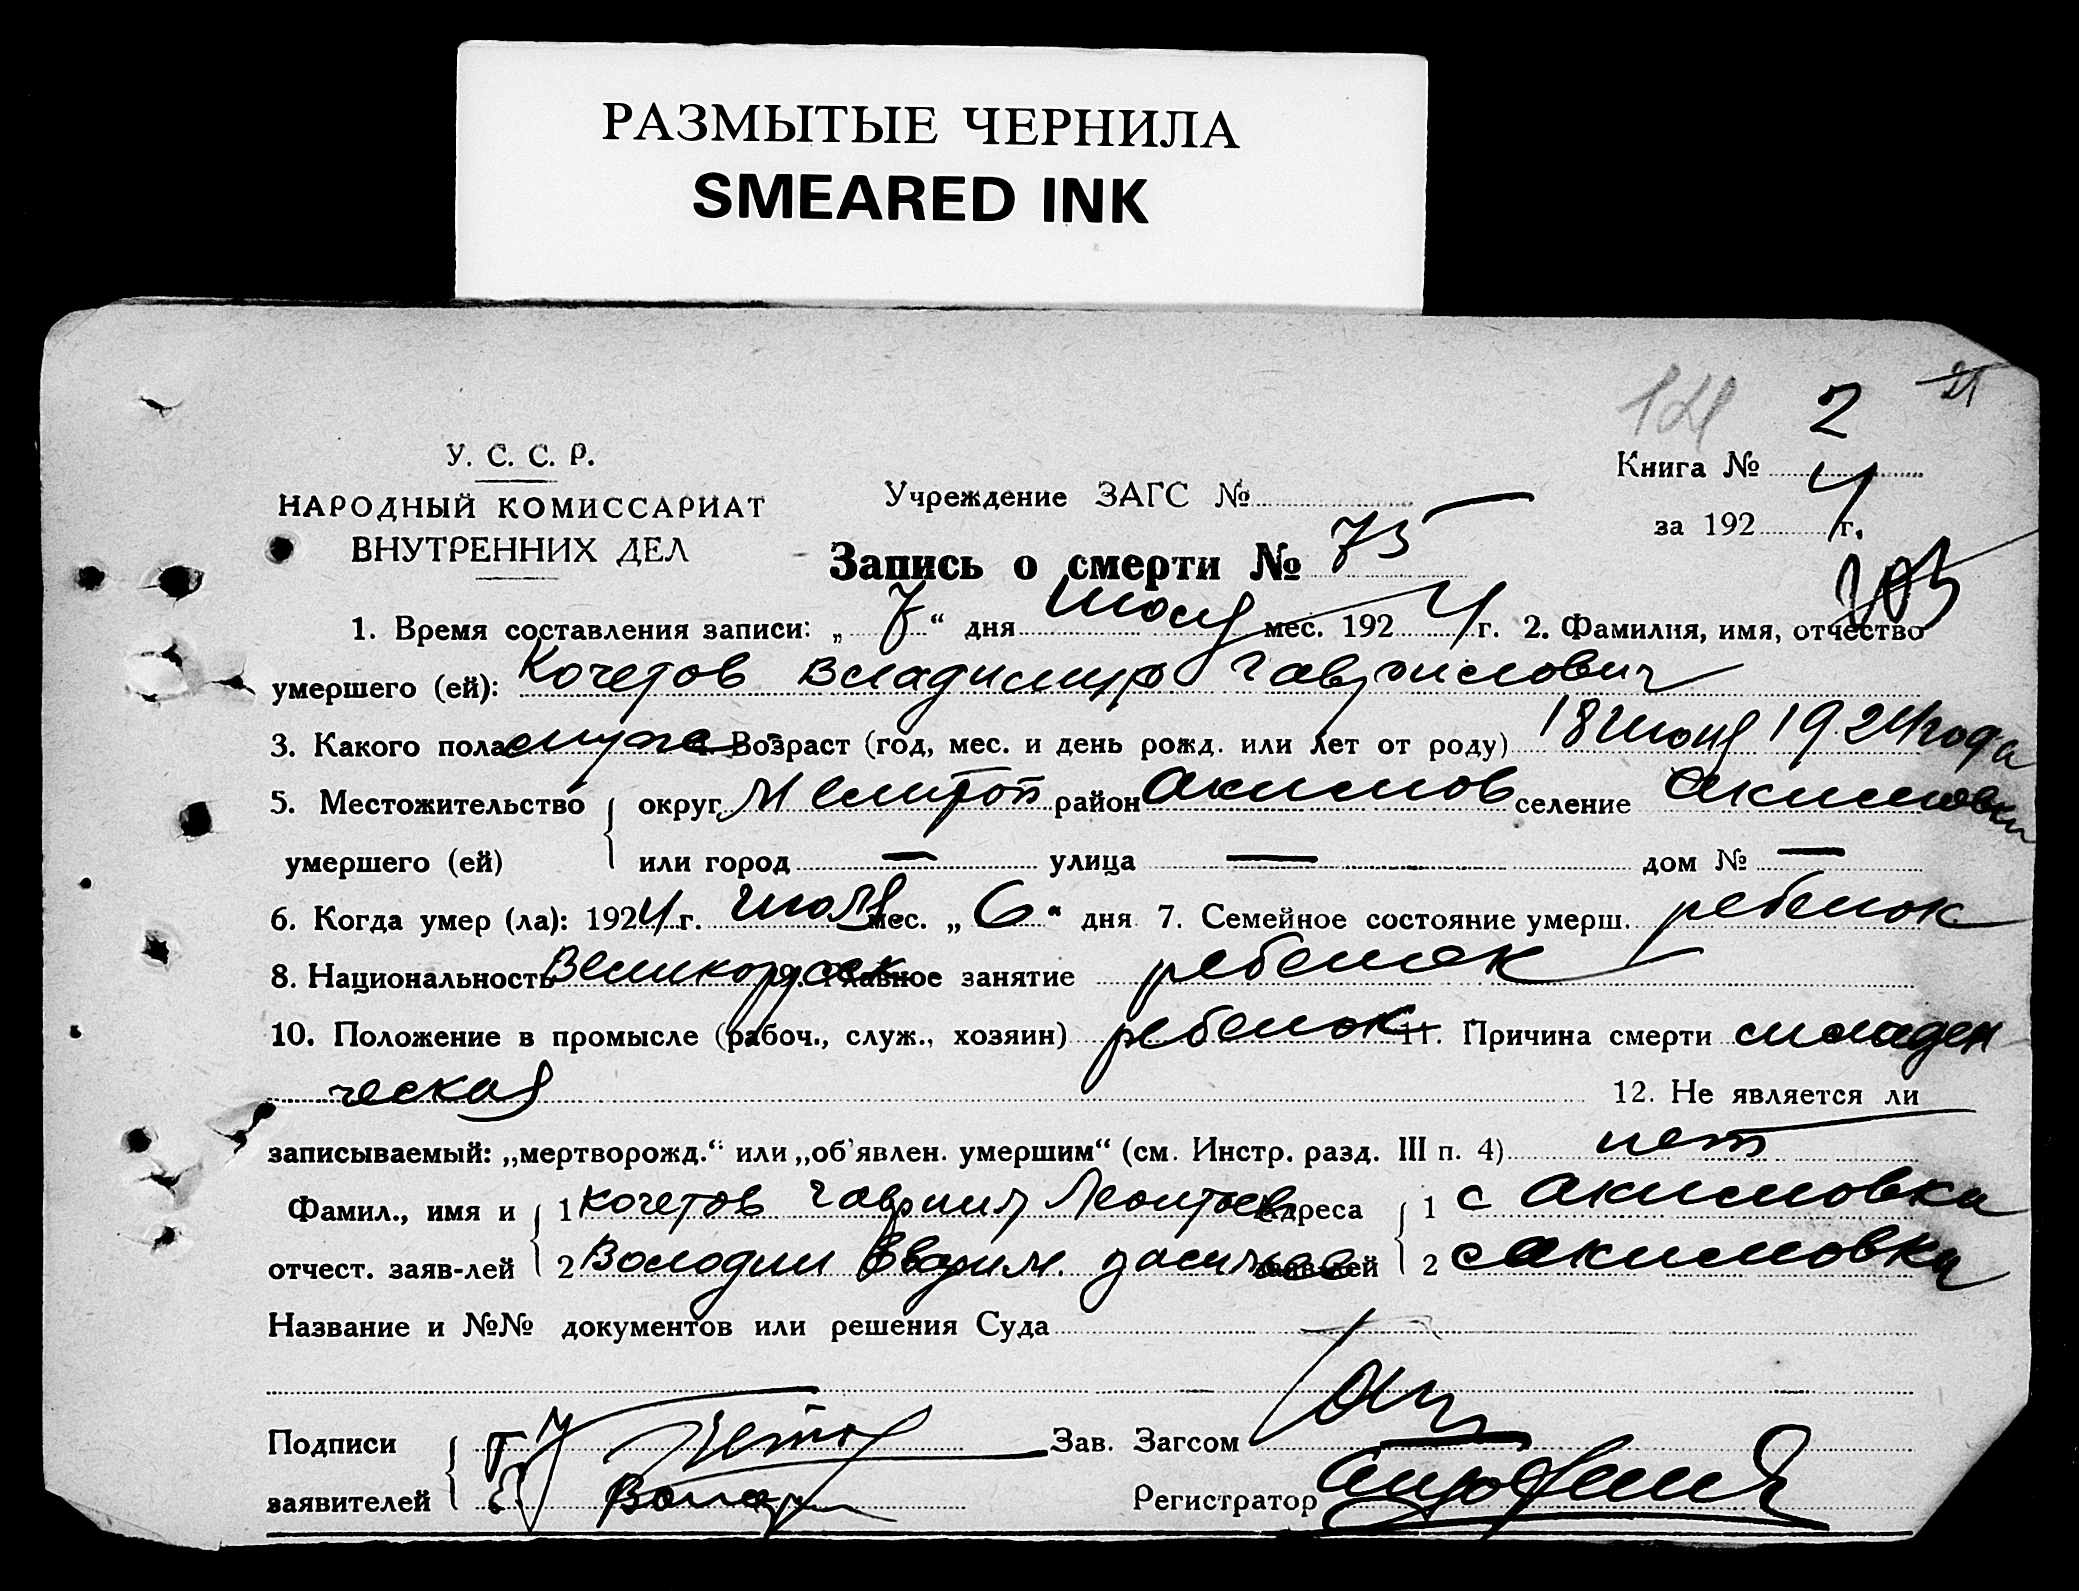 РАЗМЫТЫЕ ЧЕРНИЛА
SMEARED INK
2
У. С. С. Р.
Книга №
НАРОДНЫЙ КОМИССАРИАТ
Учреждение ЗАГС №
за 1924 г.
ВНУТРЕННИХ ДЕЛ
Запись о смерти № 75
1. Время составления записи: „7“ дня июля мес. 1924 г. 2. Фамилия, имя, отчество
умершего (ей): Кочетов Владимир Гаврилович
3. Какого пола муж 4. Возраст (год, мес. и день рожд. или лет от роду) 18 июня 1924 года
5. Местожительство округ Мелитоп район Акимов селение Акимовки
умершего (ей) или город — улица — дом № —
6. Когда умер (ла): 1924 г. июля мес. „6“ дня 7. Семейное состояние умерш. ребенок
8. Национальность Великорос 9. Главное занятие ребенок
10. Положение в промысле (рабоч., служ., хозяин) ребенок 11. Причина смерти младен
ческая 12. Не является ли
записываемый: „мертворожд.“ или „об'явлен. умершим“ (см. Инстр. разд. III п. 4) нет
Фамил., имя и 1 Кочетов Гавриил Леонтьев Адреса 1 с Акимовка
отчест. заяв-лей 2 Володин заяв-лей 2 с Акимовка
Название и №№ документов или решения Суда
Подписи Зав. Загсом
заявителей Регистратор